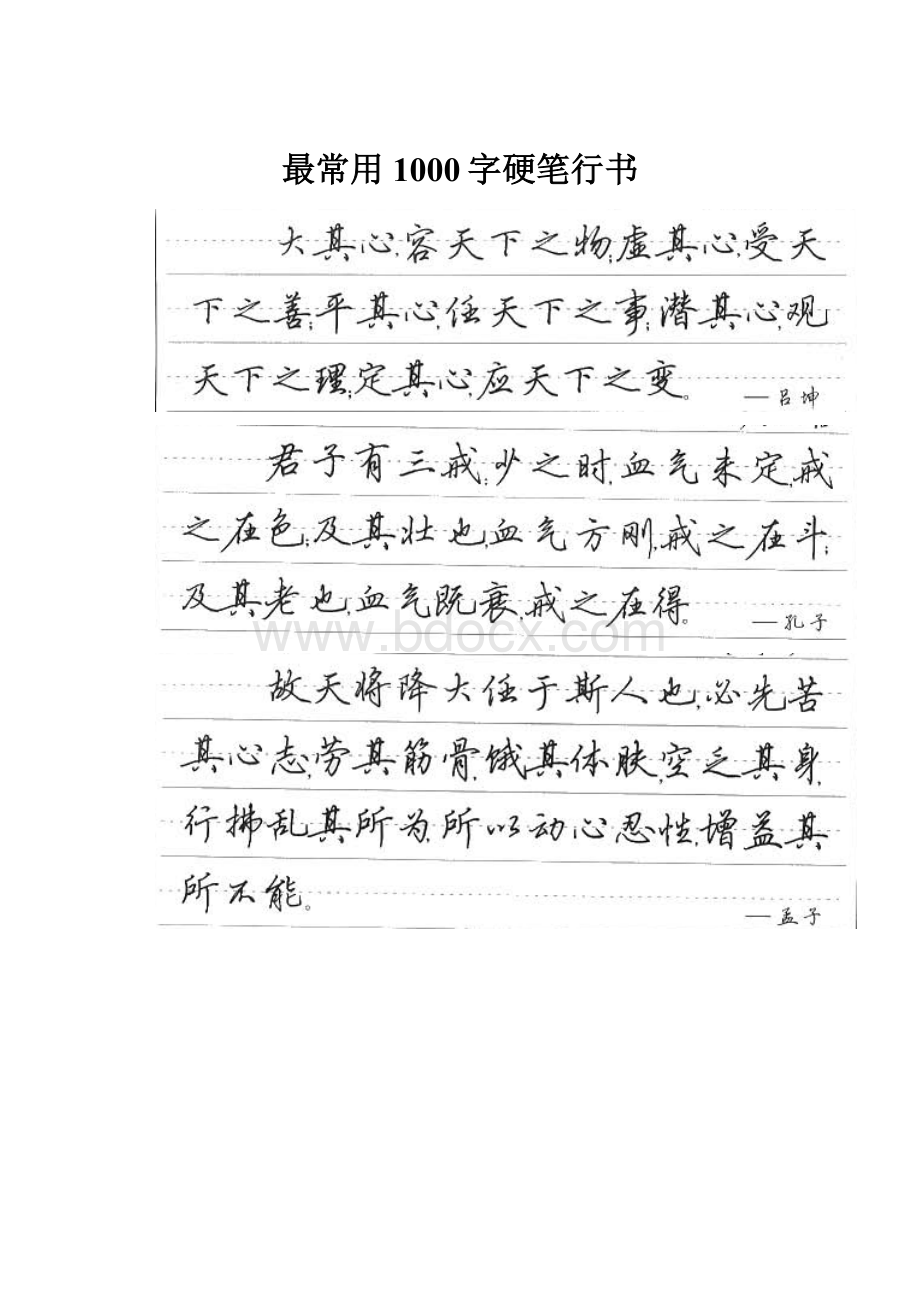 最常用1000字硬笔行书
大其心,容天下之物;虚其心,受天
下之善;平其心,任天下之事;潜其心,观
天下之理;定其心,应天下之变。
—吕坤
君子有三戒;少之时,血气未定,戒
之在色;及其壮也,血气方刚,戒之在斗;
及其老也,血气既衰,戒之在得。
—孔子
www.bdocx.com
故天将降大任于斯人也,必先苦
其心志,劳其筋骨,饿其体肤,空乏其身,
行拂乱其所为,所以动心忍性,增益其
所不能。
—孟子